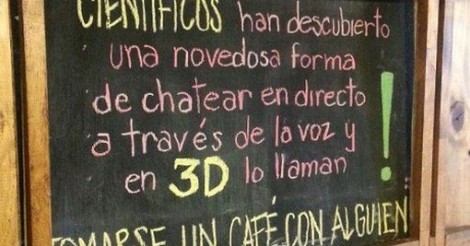 CIENTÍFICOS han descubierto
una novedosa forma
de chatear en directo
a través de la voz y
en 3D lo llaman !
TOMARSE UN CAFÉ CON ALGUIEN